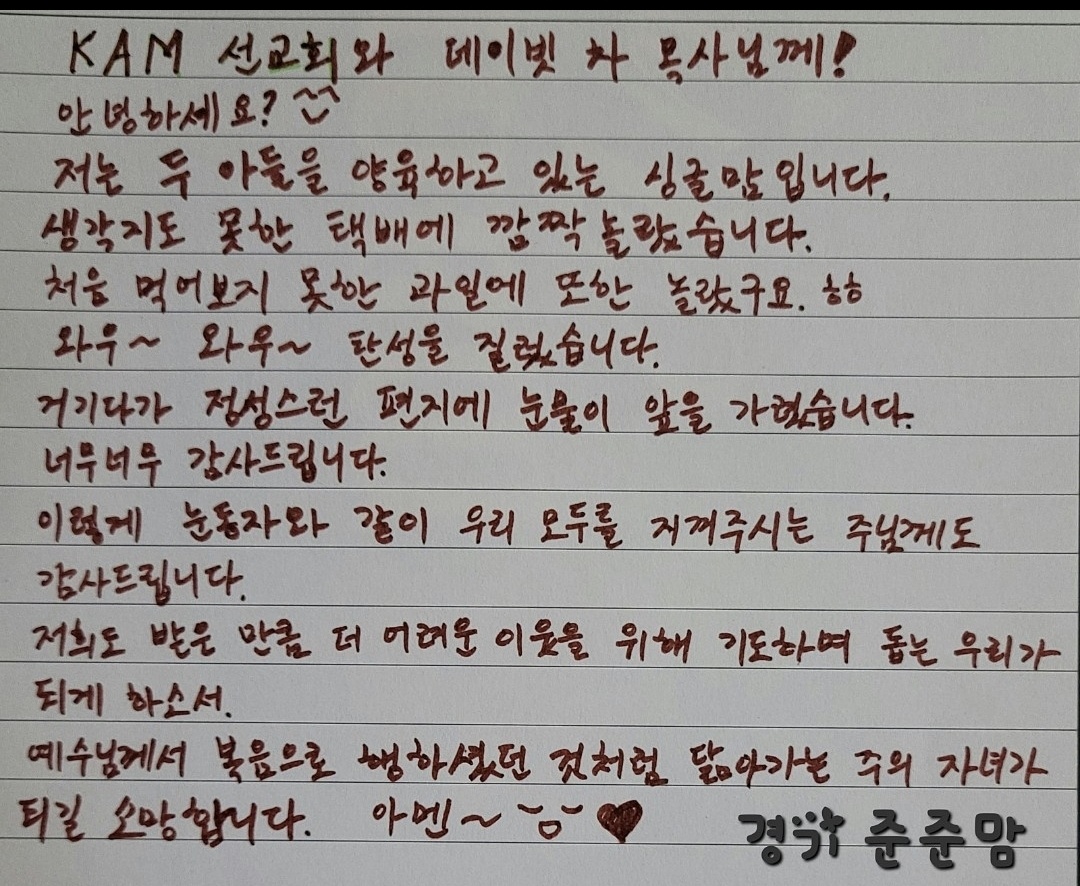 KAM 선교회와 데이빗 차 목사님께!
안녕하세요?
저는 두 아들을 양육하고 있는 싱글맘입니다.
생각지도 못한 택배에 깜짝 놀랐습니다.
처음 먹어보지 못한 과일에 또한 놀랐구요. ㅎㅎ
와우~ 와우~ 탄성을 질렀습니다.
거기다가 정성스런 편지에 눈물이 앞을 가렸습니다.
너무너무 감사드립니다.
이렇게 눈동자와 같이 우리 모두를 지켜주시는 주님께도
감사드립니다.
저희도 받은 만큼 더 어려운 이웃을 위해 기도하며 돕는 우리가
되게 하소서.
예수님께서 복음으로 행하셨던 것처럼 닮아가는 주의 자녀가
되길 소망합니다. 아멘~ ♥
준준맘